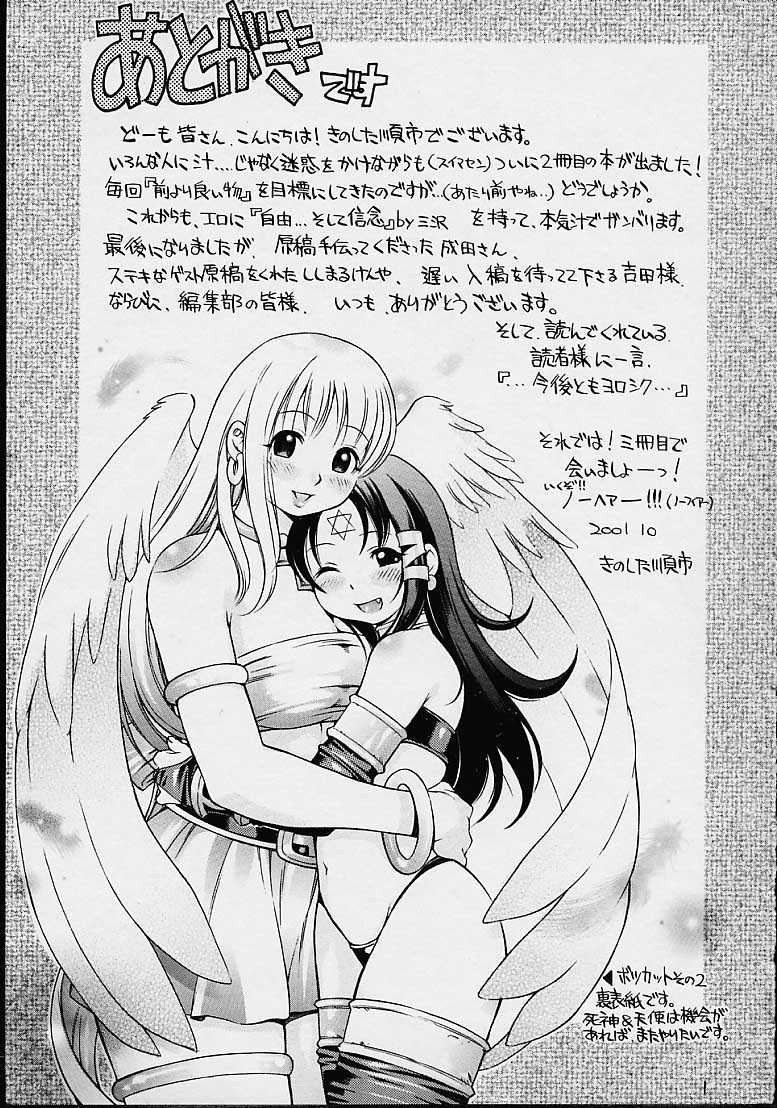 あとがきです
どーも皆さん、こんにちは！きのした順市でございます。
いろんな人に汁....じゃなく迷惑をかけながらも(スイマセン)ついに2冊目の本が出ました！
毎回『前より良い物』を目標にしてきたのですが…(あたり前やね..)どうでしょうか。
これからも、エロに『自由...そして信念』by三沢 を持って、本気汁でガンバリます。
最後になりましたが、原稿手伝ってくださった成田さん、
ステキなゲスト原稿をくれたししまるけんや、遅い入稿を待ってて下さる吉田様、
ならびに、編集部の皆様、いつもありがとうございます。
そして、読んでくれている
読者様に一言、
『... 今後ともヨロシク...』
それでは！三冊目で
会いましょーっ！
いくぞ!!
ノーヘアー!!!(ノーフィアー)
2001 10
きのした順市
◀ボツカットその2
裏表紙です。
死神&天使は機会が
あれば、またやりたいです。